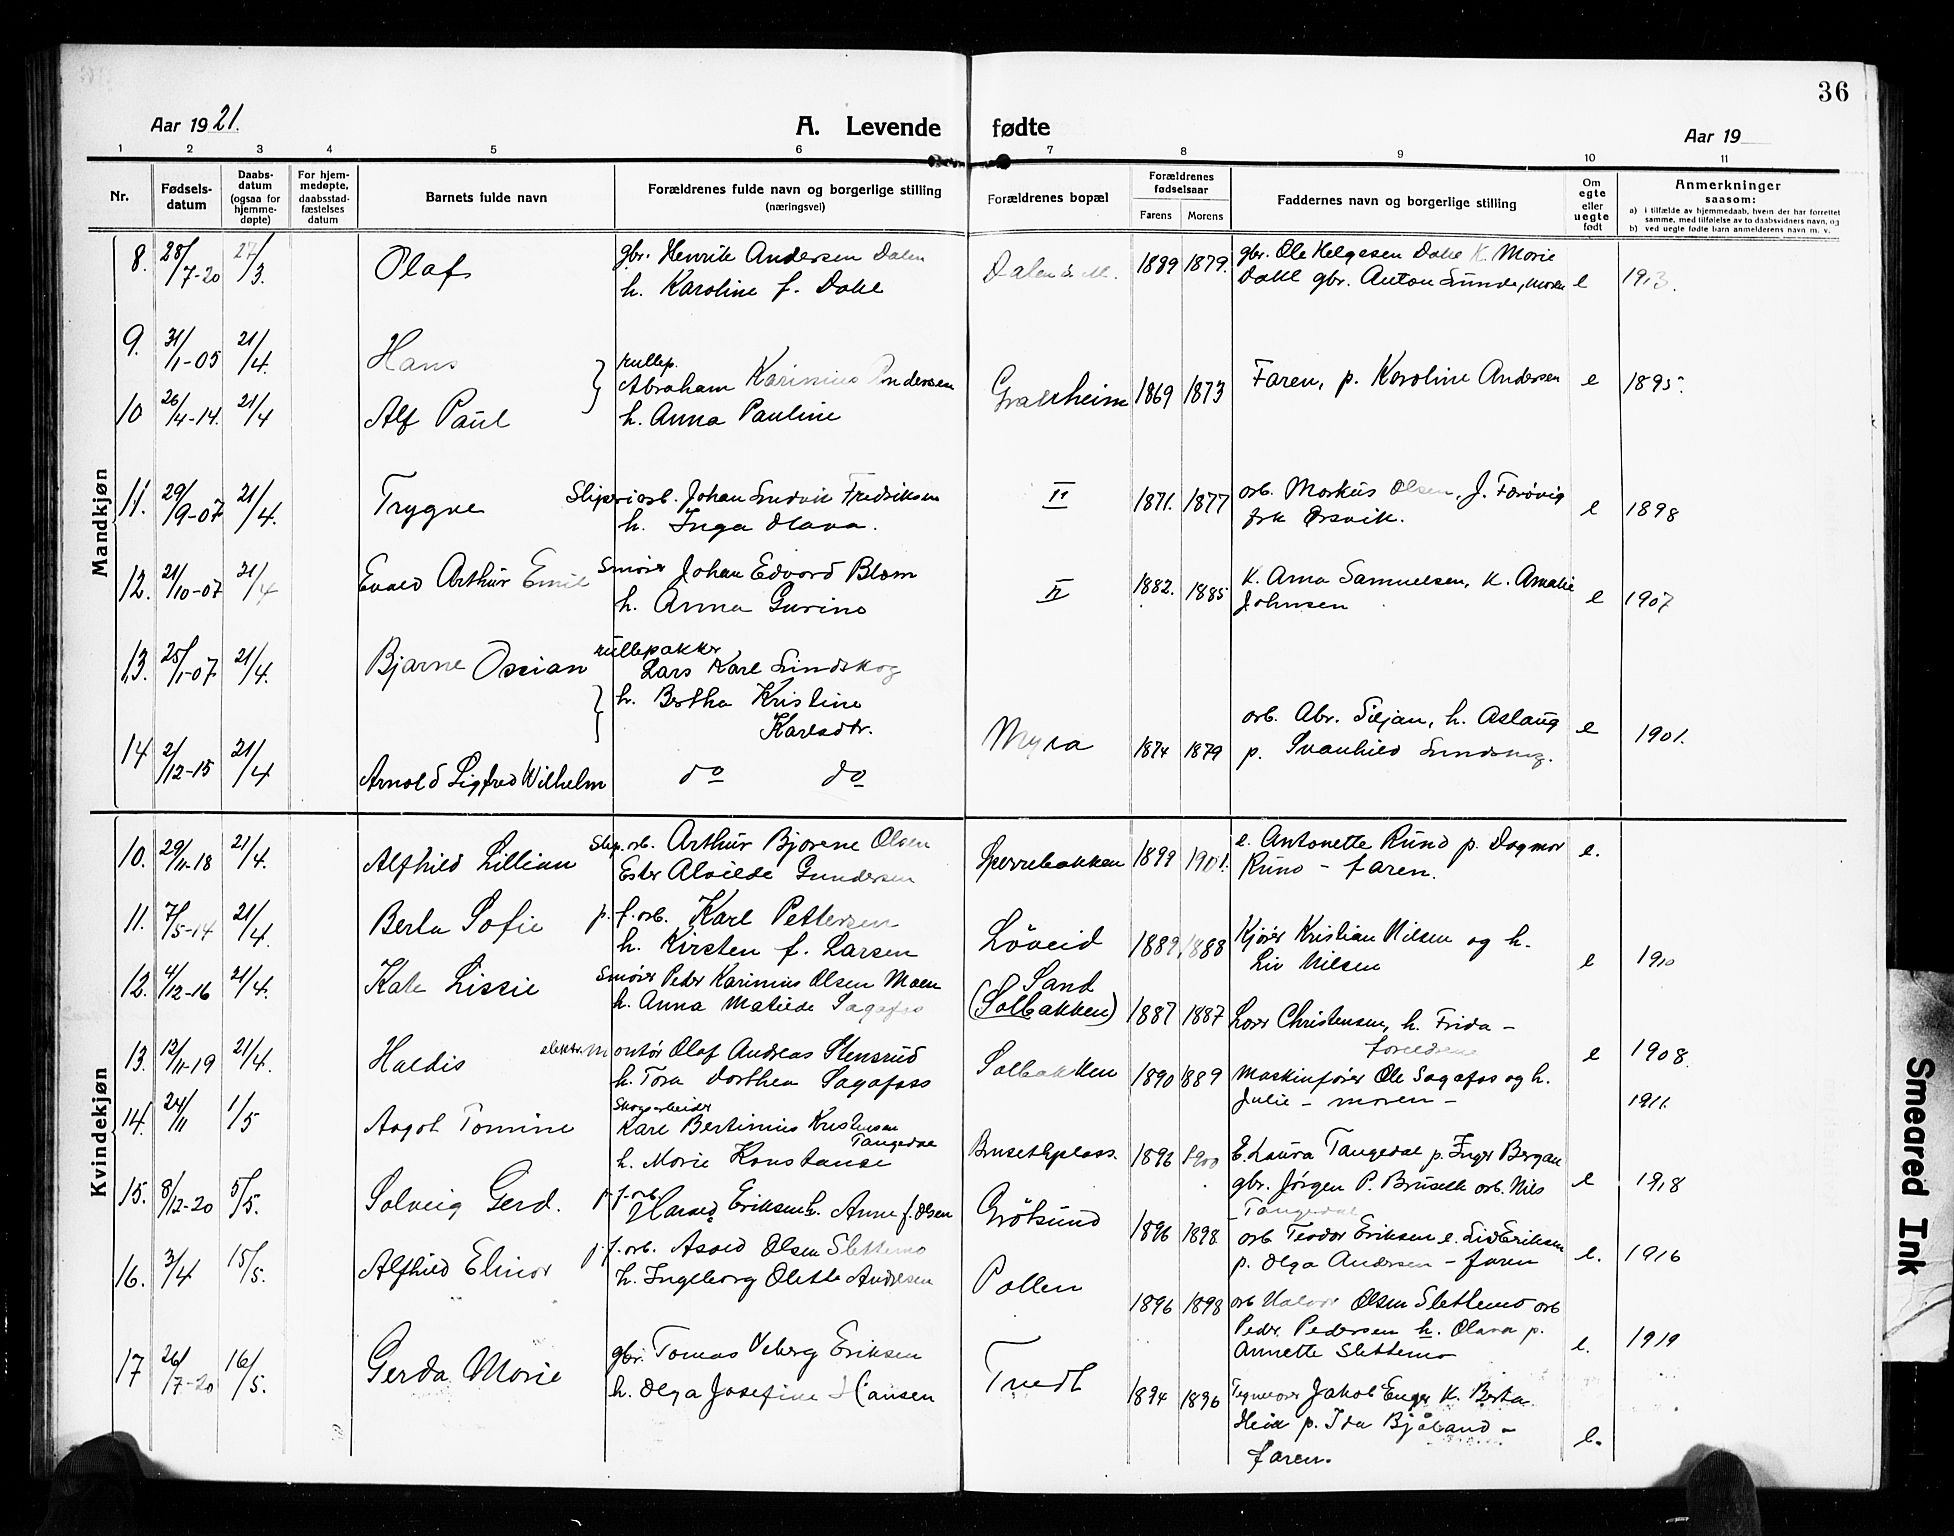 36
Aar 1921.
A. Levende fødte
Aar 19
1 2 3 4 5 6 7 8 9 10 11
Nr.
Fødsels-
datum
Daabs-
datum
(ogsaa for
hjemme-
døpte)
For hjem-
medøpte,
daabsstad-
fæstelses
datum
Barnets fulde navn
Forældrenes fulde navn og borgerlige stilling
(næringsvei)
Forældrenes bopæl
Forældrenes
fødselsaar
Farens Morens
Faddernes navn og borgerlige stilling
Om
egte
eller
uegte
født
Anmerkninger
saasom:
a) i tilfælde av hjemmedaab, hvem der har forrettet
samme, med tilføielse av to daabsvidners navn, og
b) ved uegte fødte barn anmelderens navn m. v.
Mandkjøn
8. 28/7-20 27/3. Olaf gbr. Henrik Andersen Dalen
h. Karoline f. Dahl
Dalen 1889 1879. gbr. Ole Helgesen Dahl K. Marie
Dahl gbr. Anton Sunde, moren e 1913.
9. 31/1-05 21/4. Hans
rullep.
Abraham Karinius Andersen
10 26/4-14. 21/4 Alf Paul h. Anna Pauline
Gralxheim 1869 1873 Faren, p. Karoline Andersen e 1895.
11. 29/9-07 21/4. Trygve Sliperiarb. Johan Ludvik Fredriksen
h. Inga Olava.
" 1871. 1877 arb. Markus Olsen, J. Farøvig
frk Ørsvik. e 1898
12. 21/10-07 21/4 Evald Arthur Emil Smører Johan Edvard Blom
h. Anna Gurine
" 1882. 1885 K. Anna Samuelsen, K. Amalie
Johnsen e 1907
13. 25/1-07 21/4. Bjarne Ossian rullepakker
Lars Karl Lindskog
h. Bertha Kristine
Karlsdtr.
14 2/12-15 21/4 Arnold Sigfred Wilhelm do do
Myra 1874 1879 arb. Abr. Siljan, h. Aslaug
p. Svanhild Lindskog. e 1901.
Kvindekjøn
10. 29/11-18 21/4. Alfhild Lillian Slip.arb. Arthur Bjarne Olsen
Ester Alvilde Gundersen
Sperrebakken 1899 1901. e. Antonette Rund p. Dagmar
Rund - faren. e.
11. 7/5-14 21/4. Berta Sofie p.f.arb. Karl Pettersen
h. Kirsten f. Larsen
Løveid 1889. 1888 Kjører Kristian Nilsen og h.
Liv Nilsen e 1910
12. 4/12-16 21/4. Kate Lissie Smører Peder Karinius Olsen Moen
h. Anna Matilde Sagafos
Sand
(Solbakken) 1887 1887 Lars Christensen, h. Frida -
foreldrene e 1908.
13. 12/11-19 21/4. Haldis elektr.montør Olaf Andreas Stensrud
h. Tora Dorthea Sagafoss
Solbakken 1890 1889 Maskinfører Ole Sagafos og h.
Julie - moren - 1911.
14. 24/11 1/5 Aagot Tomine Skogsarbeider
Karl Bertinius Kristensen
Tangedal
h. Marie Konstanse
Brusethplass. 1896 1900 E. Laura Tangedal p. Inger Bergan
gbr. Jørgen P. Bruseth arb. Nils
Tangedal e 1918
15. 8/12-20 5/5. Solveig Gerd. p.f.arb.
Harald Eriksen h. Anna f. Olsen
Grøtsund 1896 1898 arb. Teodor Eriksen e. Lid Eriksen
p. Olga Andersen - faren e. 1916
16. 3/4 15/5. Alfhild Elinor p.f.arb. Asold Olsen Slettemo
h. Ingeborg Olette Andresen
Pollen 1896 1898 arb Halvor Olsen Slettemo arb
Peder Pedersen h. Olava p.
Annette Slettemo e. 1919
17 26/7-20 16/5. Gerda Marie gbr. Tomas Veberg Eriksen
h. Olga Josefine Hansen
Tvedt 1894 1896 Jakob Enger K. Berta
Heia p. Ida Bjåland -
faren. e.
Smeared Ink